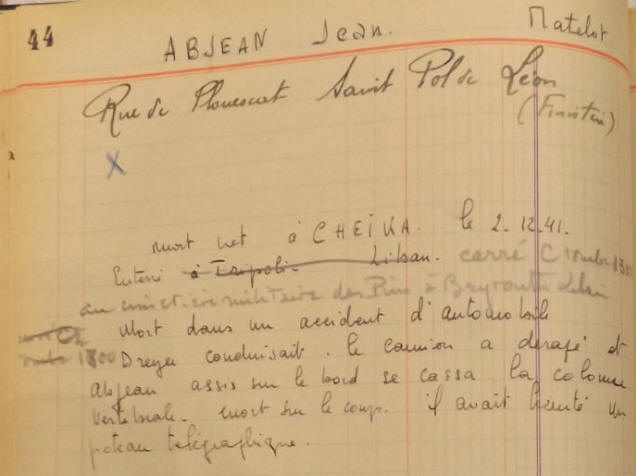 44 ABJEAN Jean. Matelot
Rue de Plouescat Saint Pol de Léon
(Finistère)
X
mort net à CHEÏKA. le 2.12.41.
Enterré à Tripoli Liban. carré C tombe
au cimetière militaire des Pins à Beyrouth Liban
Mort dans un accident d'automobile
1800 Dreyer conduisait. le camion a dérapé et
Abjean assis sur le bord se cassa la colonne
vertébrale. mort sur le coup. il avait heurté un
poteau télégraphique.